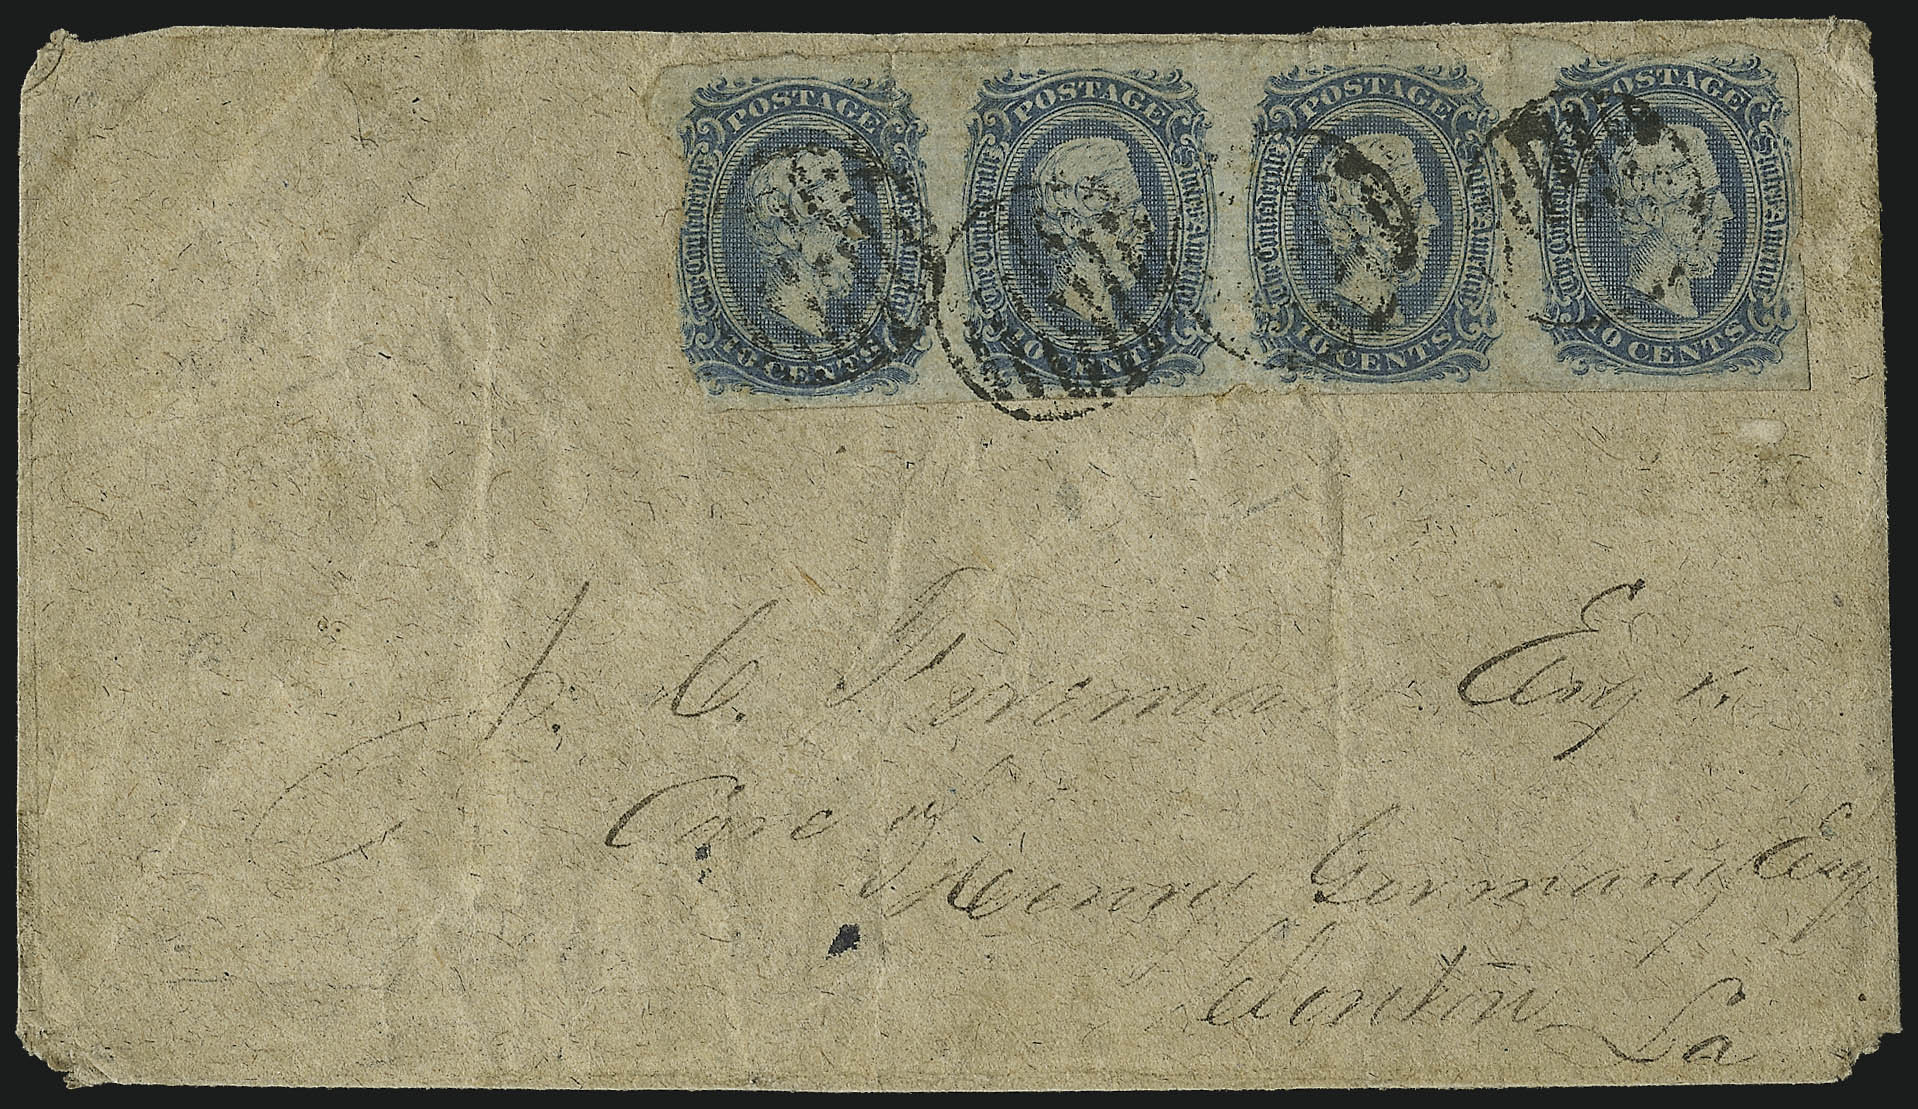 POSTAGE POSTAGE POSTAGE POSTAGE
The Confederate States America The Confederate States America The Confederate States America The Confederate States America
10 CENTS 10 CENTS 10 CENTS 10 CENTS
J. C. Foreman Esqr.
Care of
Henry Germany Esq
Clenton La